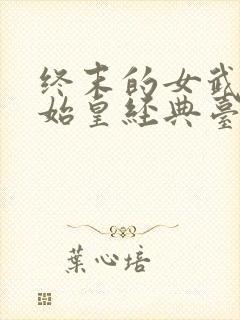 终末的女武
始皇经典台
葉心培